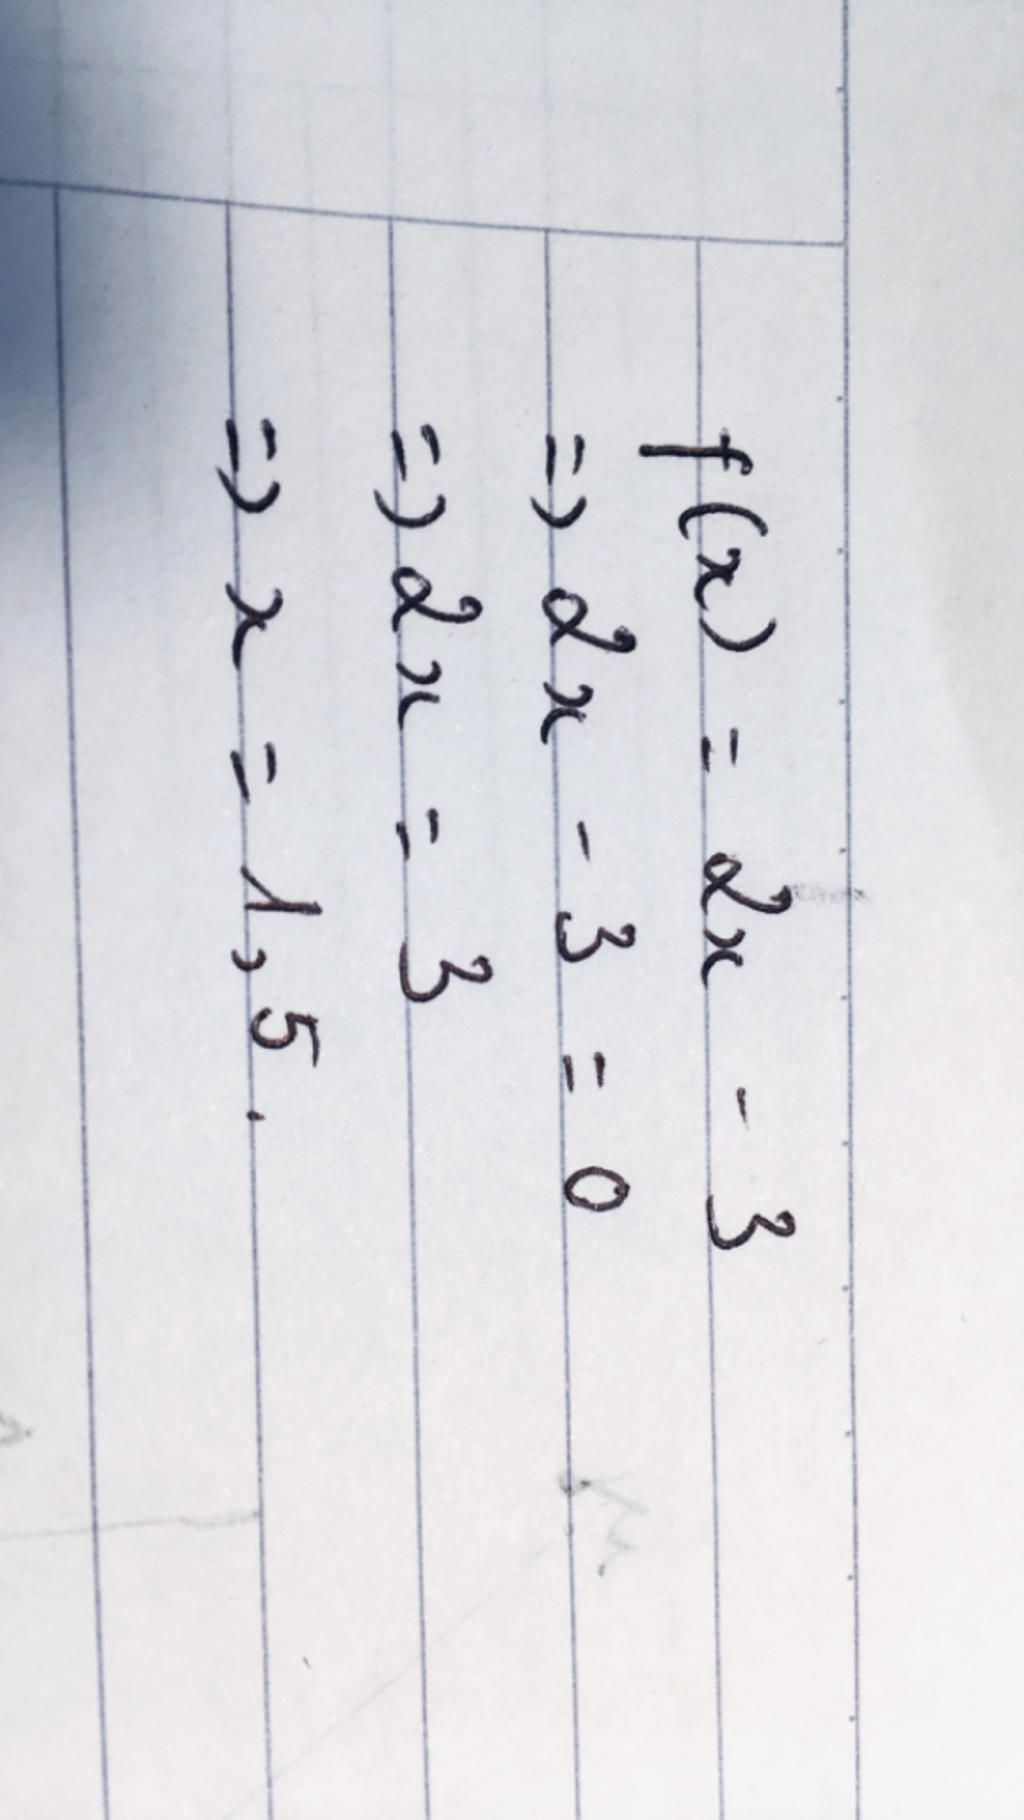 f(x) = 2x - 3
=> 2x - 3 = 0
=> 2x = 3
=> x = 1,5.